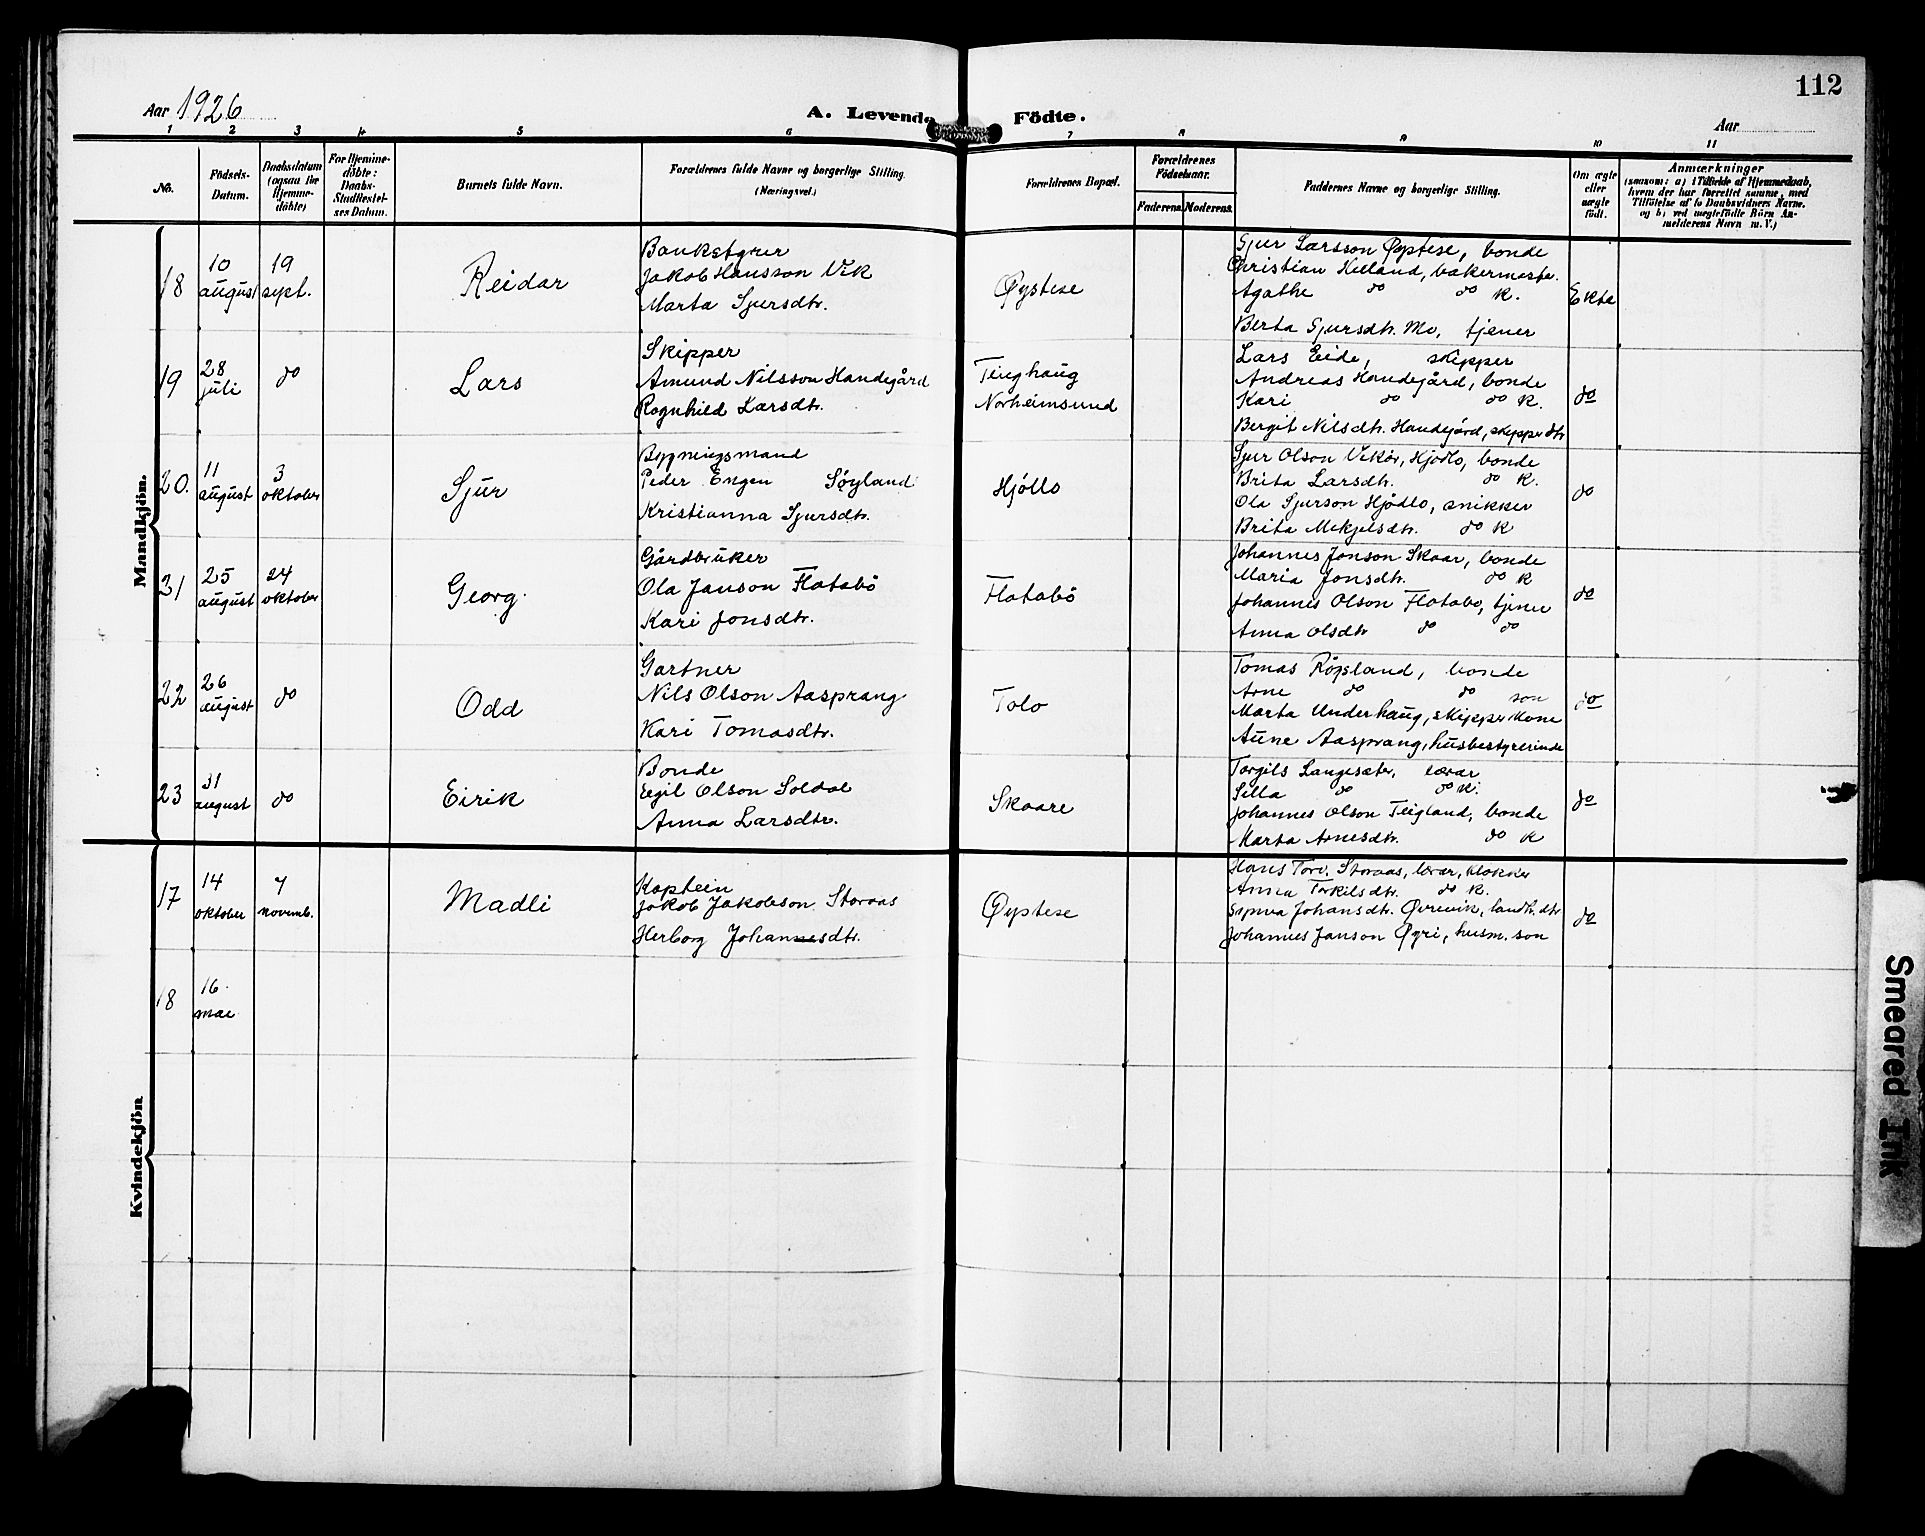 112
Aar 1926
A. Levende Födte.
Aar
1 2 3 4 5 6 7 8 9 10 11
No.
Födsels-Datum.
Daabsdatum (ogsaa for Hjemme-döbte)
For Hjemme-döbte: Daabs-Stadfæstel-ses Datum.
Barnets fulde Navn.
Forældrenes fulde Navne og borgerlige Stilling. (Næringsvei.)
Forældrenes Bopæl.
Forældrenes Födselsaar.
Faderens. Moderens.
Faddernes Navne og borgerlige Stilling.
Om ægte eller uægte födt.
Anmærkninger
(saasom: a) i Tilfælde af Hjemmedaab, hvem der har forrettet samme, med Tilföielse af to Daabsvidners Navne. og b) ved uægtefödte Börn An-melderens Navn m. V.)
Mandkjön.
18
10 august
19 sept.
Reidar
Bankstyrer
Jakob Hansson Vik
Marta Sjursdtr.
Øystese
Sjur Larsson Øystese, bonde
Christian Hilland, bakermester.
Agathe do do K.
Berta Sjursdtr. Mo, tjener
Ekte
19
28 juli
do
Lars
Skipper
Amund Nilsson Handegård
Ragnhild Larsdtr.
Tinghaug
Norheimsund
Lars Eide, skipper
Andreas Handegård, bonde
Kari do do K.
Bergit Nilsdtr. Handegård, skipper dtr
do
20.
11 august
3 oktober
Sjur
Bygningsmand
Peder Engen Søyland
Kristianna Sjursdtr.
Hjóllo
Sjur Olson Vikør, Hjødlo, bonde
Brita Larsdtr. do K.
Ola Sjurson Hjødlo, snikker
Brita Mikjelsdtr. do K
do
21
25 august
24 oktober
Georg.
Gårdbruker
Ola Janson Flatabö
Kari Jonsdtr.
Flatabö
Johannes Jonson Skaar, bonde
Maria Jonsdtr. do K
Johannes Olson Flatabo, tjener
Anna Olsdtr do do
do
22
26 august
do
Odd
Gartner
Nils Olson Aasprang
Kari Tomasdtr.
Tolo
Tomas Røysland, bonde
Arne do do son
Marta Underhaug, skipper kone
Aune Aasprang, husbestyrerinde
do
23
31 august
do
Eirik
Bonde
Eigil Olson Soldal
Anna Larsdtr.
Skaare
Torgils Langesæter, lærar
Silla do do K.
Johannes Olson Teigland, bonde
Marta Arnesdtr. do K
do
Kvindekjön
17
14 oktober
7 novemb.
Madli
Kaptein
Jakob Jakobson Storaas
Herborg Johannesdtr.
Øystese
Hans Torv. Storaas, lærar, klokker
Anna Torkilsdtr. do K.
Synva Johansdtr. Øvrevik, landh. dtr
Johannes Janson Øyri, husm. son
do
18
16. mai
Smeared Ink